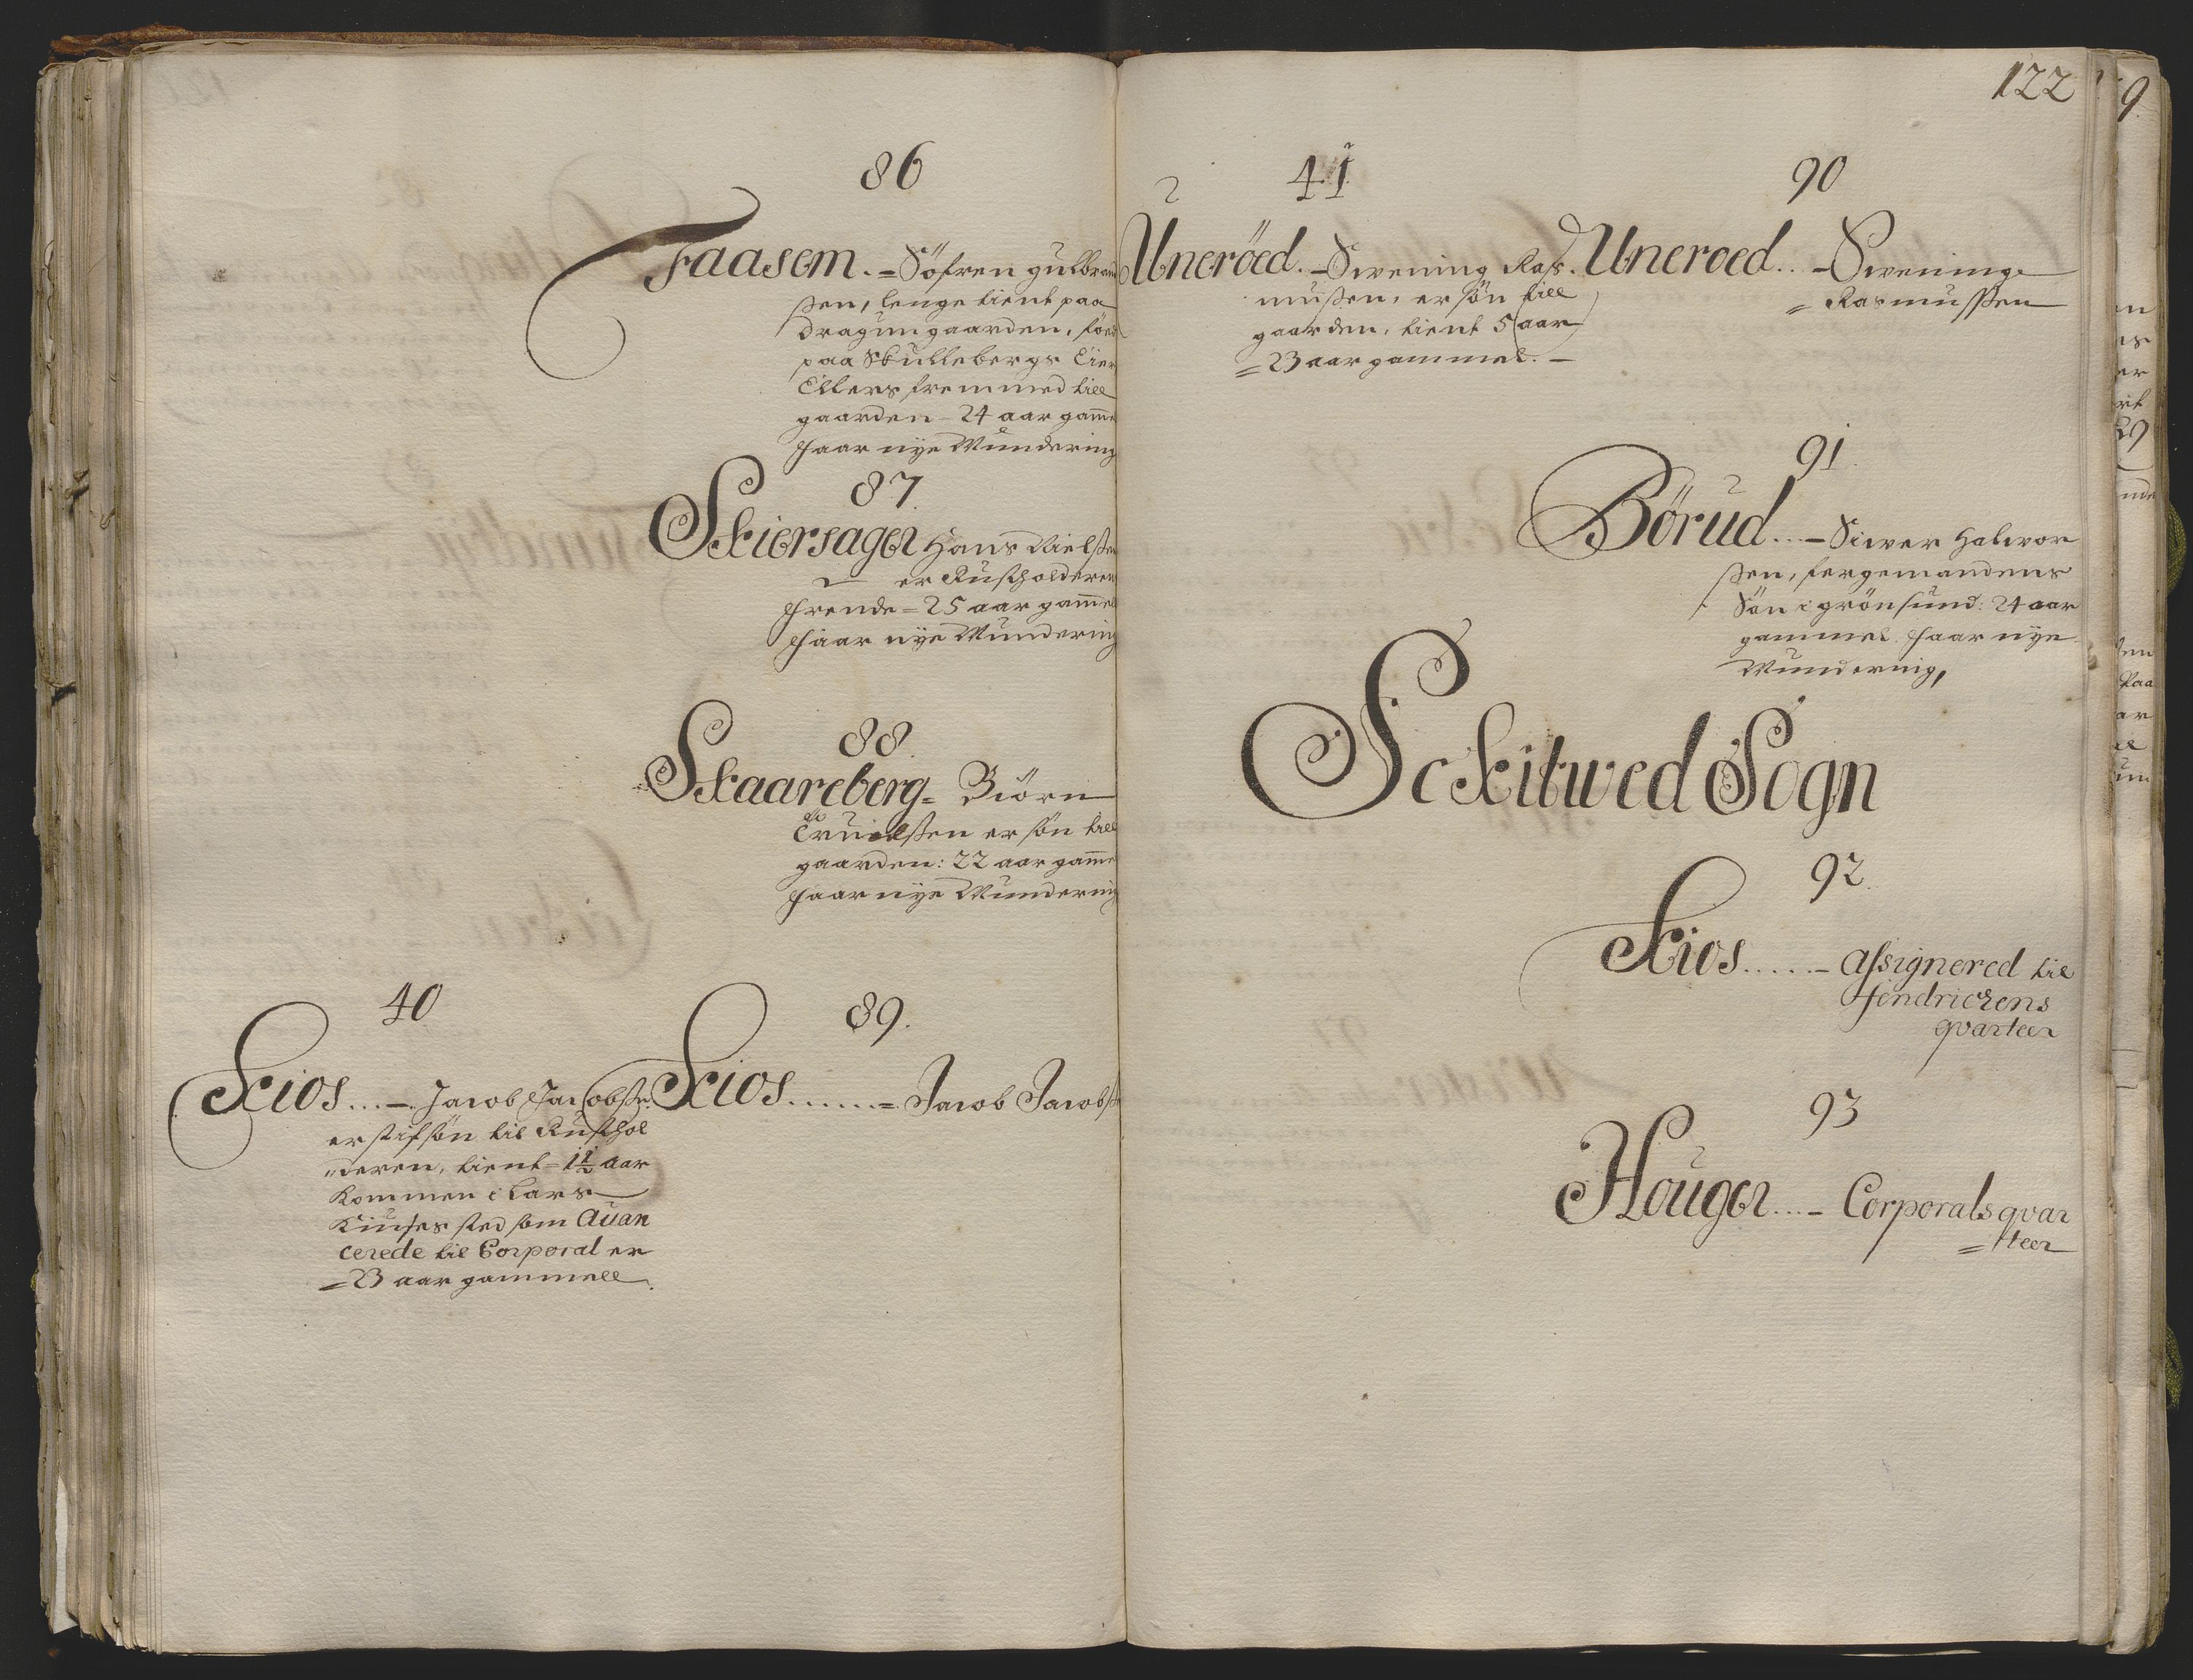 86
Faasem. = Söfren gulbrand
ßen, lenge tient paa
dragun gaarden, föed
paa Skullebergs Eier
Ellers fremmed till
gaarden - 24 aar gam̅e
faar nye Mundering
87.
Skiersager Hans Nielßen
er Rußholderens
frende = 25 aar gam̅el
faar nye Mundering
88.
Skaareberg = Biörn
Truielßen er sön till
gaarden: 22 aar gam̅e
faar nye Mundering
40
Kios...-. Jacob Jacobßen
er stifsön til Rusthol
"deren, tient = 1½ aar
kommen i Lars
sted som Auan
cerede til Corporal er
= 23 aar gammell.
89.
Kios......= Jacob Jacobß
122
41
Uneröed. - Swening Ras.
mußen, er sön till
gaarden, tient 5 aar
= 23 aar gammel. -
90
Uneroed.. - Swening
= Rasmussen
91.
Börud...- Siwer Halwor
ßen, fergemandens
Sön i grönsund: 24 aar
gammel faar nye
Mundering,
Sckitwed Sogn
92.
Kios.....- assignered til
fendrickens
qvarteer
93
Houger...- Corporals qvar
= teer